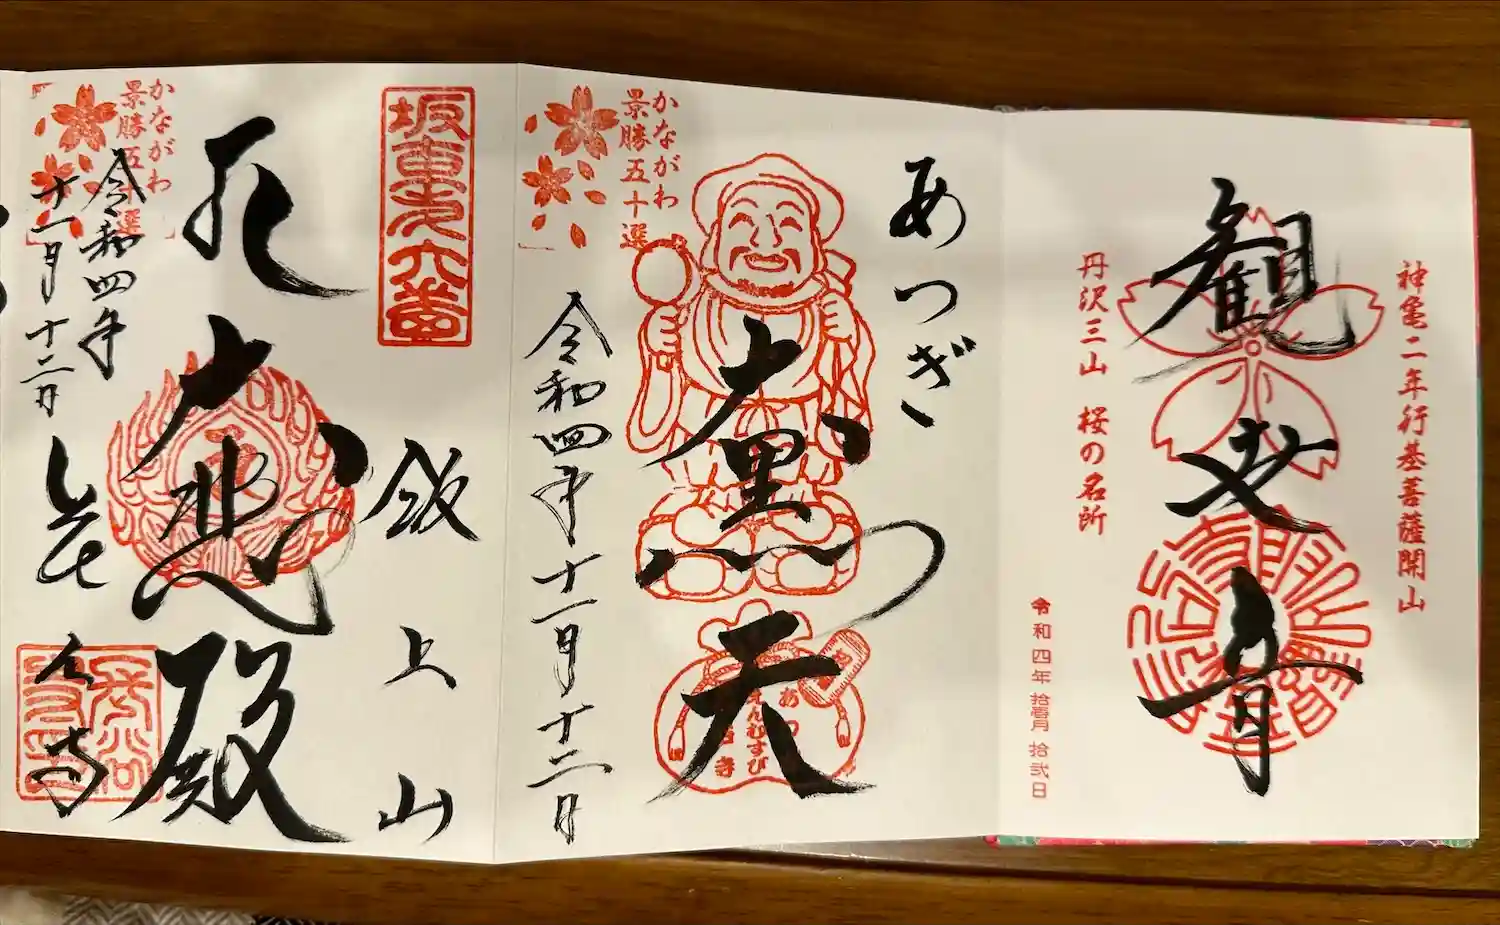 神亀二年行基菩薩開山
観世音
丹沢三山 桜の名所
令和四年 拾壱月 拾弐日
あつぎ
大黒天
えんむすび
かながわ
景勝五十選
令和四年十一月十二日
坂東第六番
飯上山
大悲殿
かながわ
景勝五十選
令和四年
十一月十二日
長谷寺